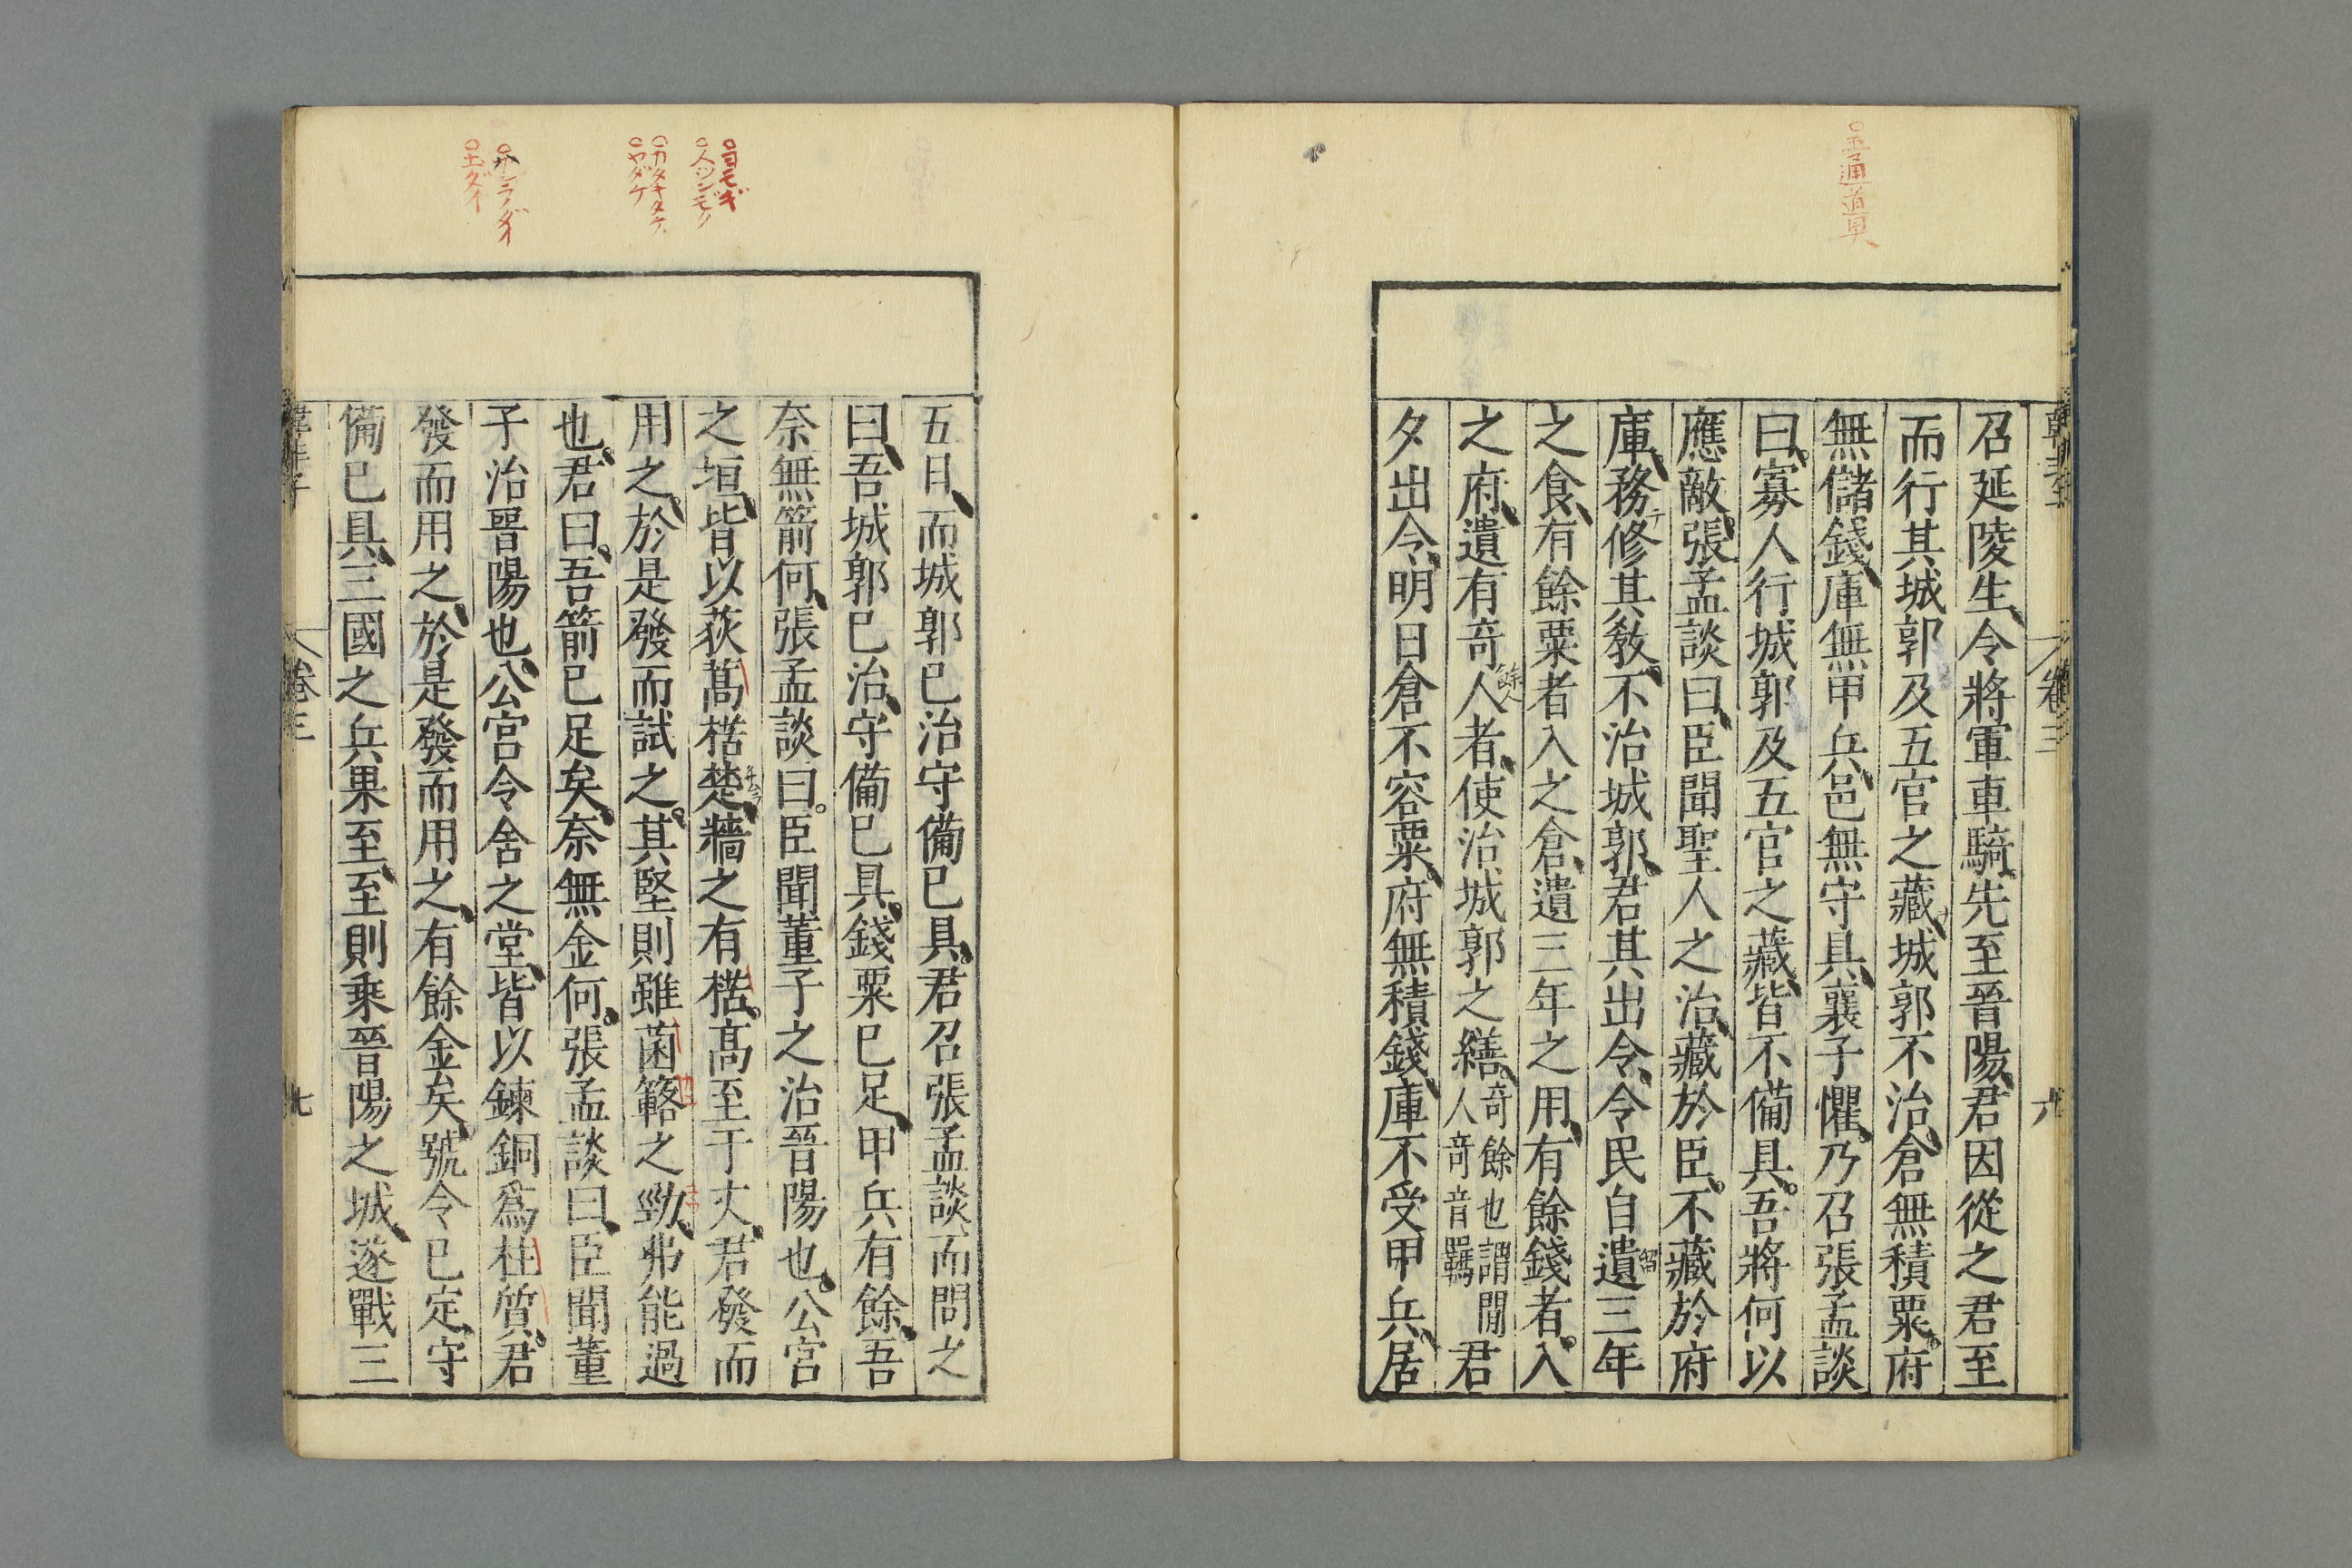 卷三
六
召延陵生、令將軍車騎。先至晉陽、君因從之君至
而行其城郭及五官之藏、城郭不治、倉無積粟。府
無儲錢、庫無甲兵、邑無守具、襄子懼、乃召張孟談
曰。寡人行城郭及五官之藏、皆不備具。吾將何以
應敵、張孟談曰、臣聞聖人之治、藏於臣。不藏於府
庫、務修其敎、不治城郭、君其出令、令民自遺三年
之食、有餘粟者入之倉、遺三年之用、有餘錢者。入
之府、遺有奇人者、使治城郭之繕、奇餘也謂閒人奇音羈君
夕出令、明日倉不容粟、府無積錢、庫不受甲兵、居
餘人
五日、而城郭已治守備已具、君召張孟談、而問之
曰、吾城郭已治、守備已具。錢粟已足、甲兵有餘、吾
奈無箭何、張孟談曰。臣聞董子之治晉陽也、公宮
之垣、皆以荻蒿楛楚、牆之有楛。高至于丈、君發而
用之、於是發而試之。其堅則雖菌簵之勁、弗能過
也。君曰、吾箭已足矣、奈無金何。張孟談曰、臣聞董
子治晉陽也、公宮令舍之堂、皆以鍊銅爲柱質。君
發而用之、於是發而用之、有餘金矣、號令已定、守
備已具、三國之兵果至、至則乗晉陽之城、遂戰三
卷三
七
ヨモギ
カタキタケ
ヤダケ